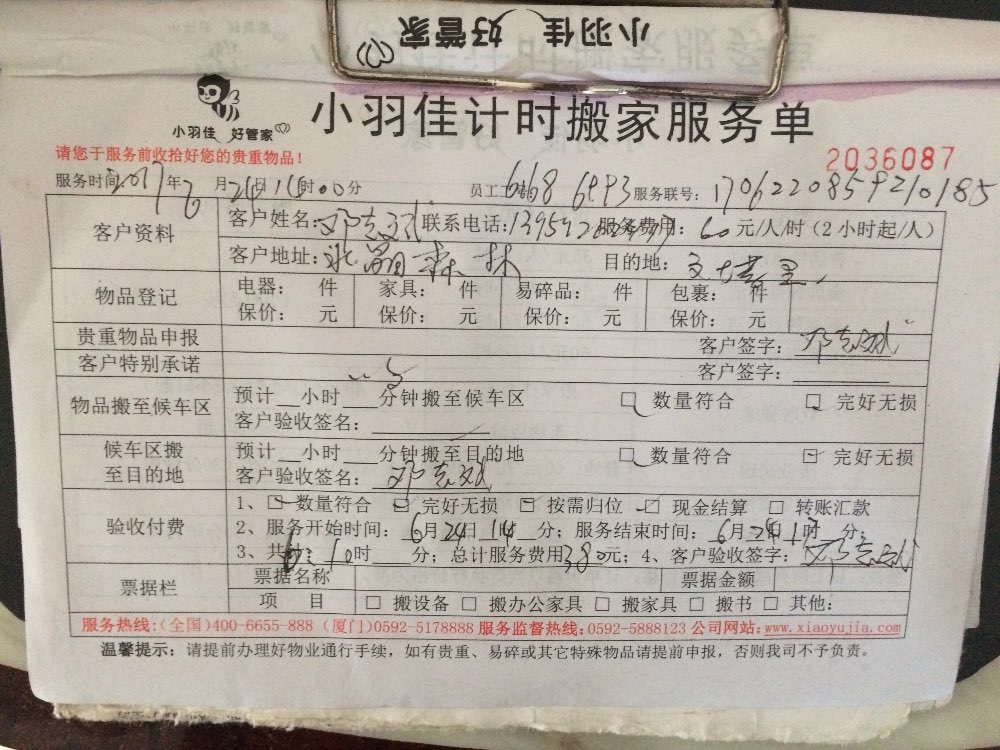 小羽佳 好管家
小羽佳 好管家
小羽佳计时搬家服务单
请您于服务前收拾好您的贵重物品！
2036087
服务时间2017年6月24日14时00分 员工工号 6168 6993 服务联号：170622085
客户资料 客户姓名： 联系电话： 服务费用：60元/人/时（2小时起/人）
客户地址： 森林 目的地：文塔里
物品登记 电器： 件 家具： 件 易碎品： 件 包裹： 件
保价： 元 保价： 元 保价： 元 保价： 元
贵重物品申报 客户签字：
客户特别承诺 客户签字：
物品搬至候车区 预计__小时__分钟搬至候车区 □ 数量符合 □ 完好无损
客户验收签名：
候车区搬至目的地 预计__小时__分钟搬至目的地 □ 数量符合 □ 完好无损
客户验收签名：
验收付费 1、□ 数量符合 □ 完好无损 □ 按需归位 □ 现金结算 □ 转账汇款
2、服务开始时间：6月24日14时 分；服务结束时间：6月24日 时 分；
3、共计： 时 分；总计服务费用380元；4、客户验收签字：
票据栏 票据名称 票据金额
项 目 □ 搬设备 □ 搬办公家具 □ 搬家具 □ 搬书 □ 其他：
服务热线:(全国)400-6655-888 (厦门)0592-5178888 服务监督热线:0592-5888123 公司网站:www.xiaoyujia.com
温馨提示：请提前办理好物业通行手续，如有贵重、易碎或其它特殊物品请提前申报，否则我司不予负责。